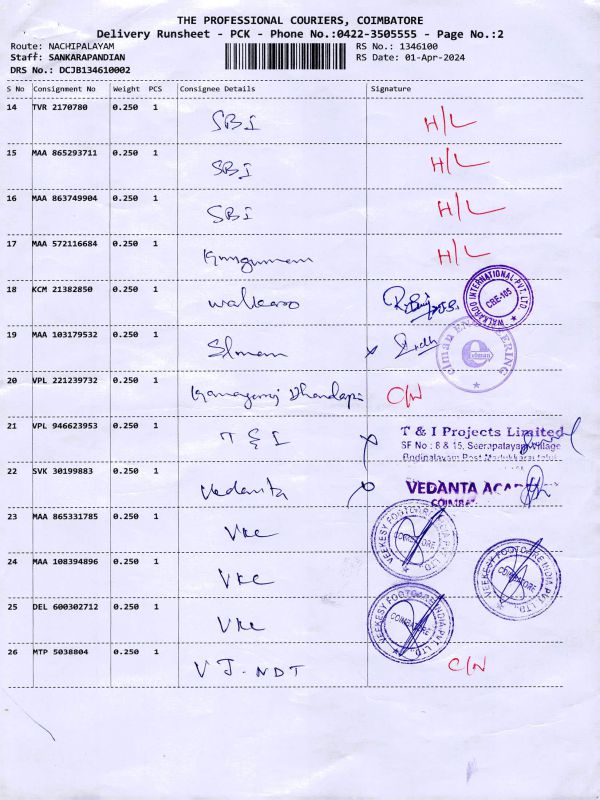 THE PROFESSIONAL COURIERS, COIMBATORE
Delivery Runsheet - PCK - Phone No.:0422-3505555 - Page No.:2
Route: NACHIPALAYAM RS No.: 1346100
Staff: SANKARAPANDIAN RS Date: 01-Apr-2024
DRS No.: DCJB134610002
S No Consignment No Weight PCS Consignee Details Signature
14 TVR 2170780 0.250 1 SBI H/L
15 MAA 865293711 0.250 1 SBI H/L
16 MAA 863749904 0.250 1 SBI H/L
17 MAA 572116684 0.250 1 H/L
18 KCM 21382850 0.250 1 Walkaroo
WALKAROO INTERNATIONAL PVT. LTD
CBE-105
19 MAA 103179532 0.250 1
elman ENGINEERING
elman
20 VPL 221239732 0.250 1 C/N
21 VPL 946623953 0.250 1 T & I T & I Projects Limited
SF No : 8 & 15, Seerapalayam Village
22 SVK 30199883 0.250 1 Vedanta VEDANTA
23 MAA 865331785 0.250 1 VKC
VEEKESY FOOTCARE INDIA PVT. LTD.
COIMBATORE
24 MAA 108394896 0.250 1 VKC
VEEKESY FOOTCARE INDIA PVT. LTD.
COIMBATORE
25 DEL 600302712 0.250 1 VKC
VEEKESY FOOTCARE INDIA PVT. LTD.
COIMBATORE
26 MTP 5038804 0.250 1 V J. NDT C/N